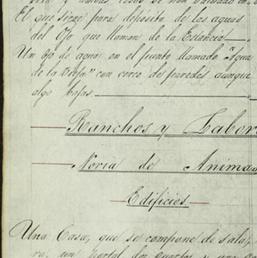 El que sirve para depósito de las aguas
del Ojo que llaman de la Estancia
Un Ojo de agua en el punto llamado "Agua
de la Vieja" con cerco de paredes aunque
algo bajas
Ranchos y Labor
Noria de Animas
Edificios
Una Casa, que se compone de sala,
un portal, dos cuartos y una